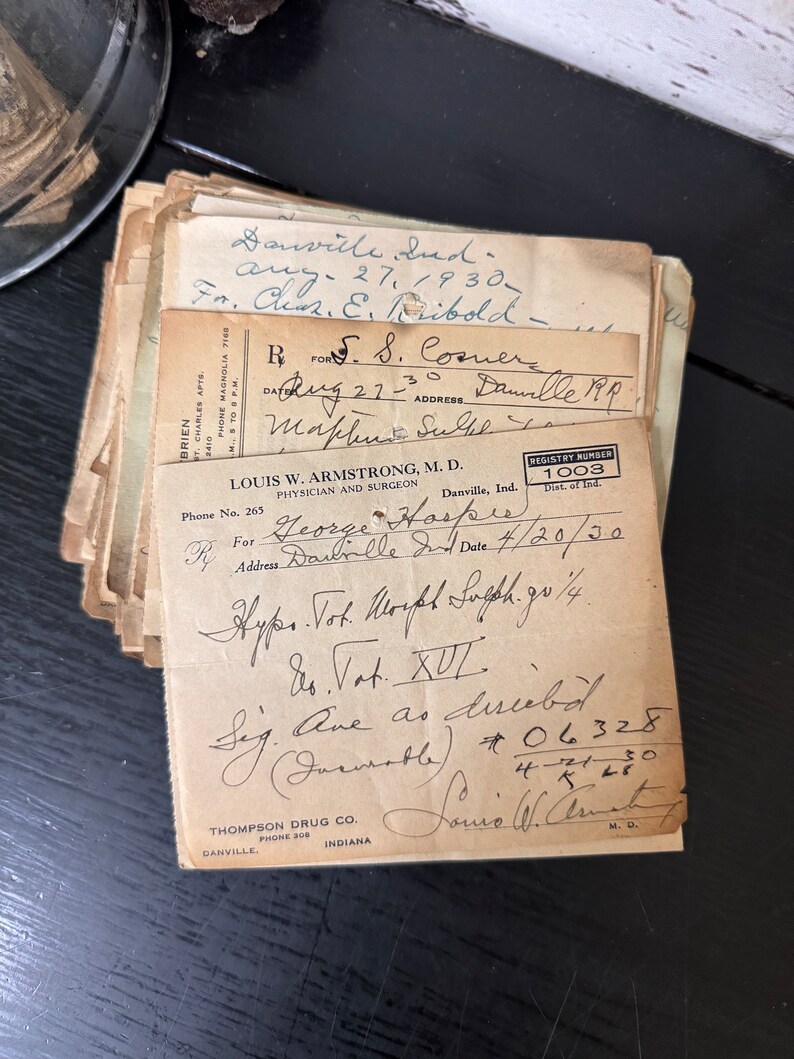 Danville Ind -
Aug - 27, 1930 -
For Chas. E.
BRIEN
ST. CHARLES APTS.
2410
PHONE MAGNOLIA 7168
M., 5 TO 8 P.M.
℞ FOR S. S. Cosner
DATE Aug 27 - 30 ADDRESS Danville RR
Morphine Sulph
LOUIS W. ARMSTRONG, M. D.
PHYSICIAN AND SURGEON
REGISTRY NUMBER
1003
Phone No. 265 Danville, Ind. Dist. of Ind.
℞ For George
Address Danville Ind Date 4/20/30
Hypo. Tat. Morph Sulph. gr 1/4
No. Tat. XVI
Sig. One as directed
# 06328
(Incurable) 4-21-30
Louis W. Armstrong
M. D.
THOMPSON DRUG CO.
PHONE 308
DANVILLE, INDIANA